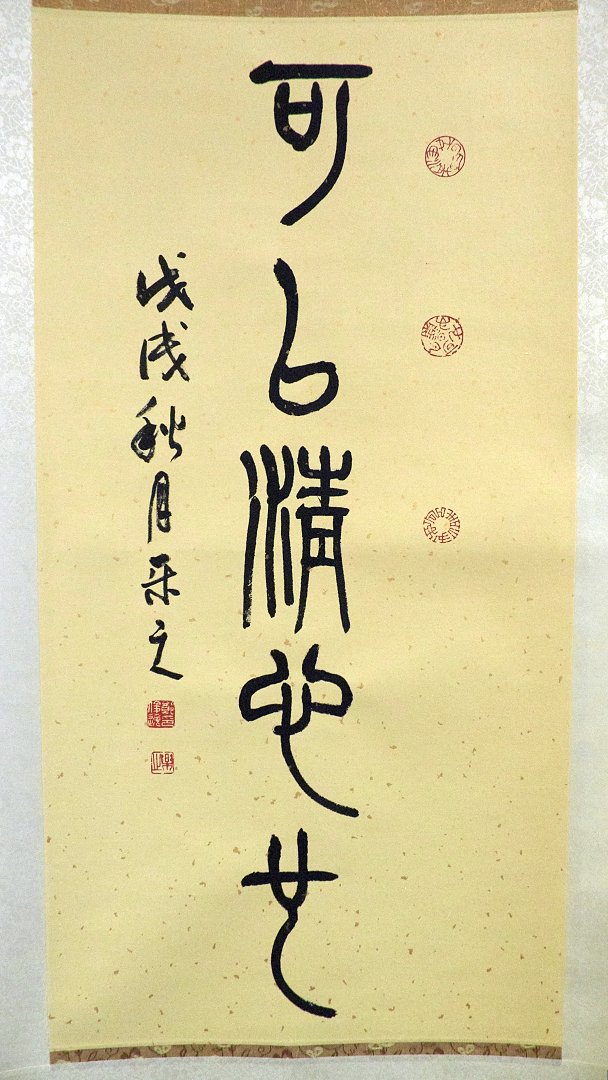 可以清心也
戊戌秋月乐之